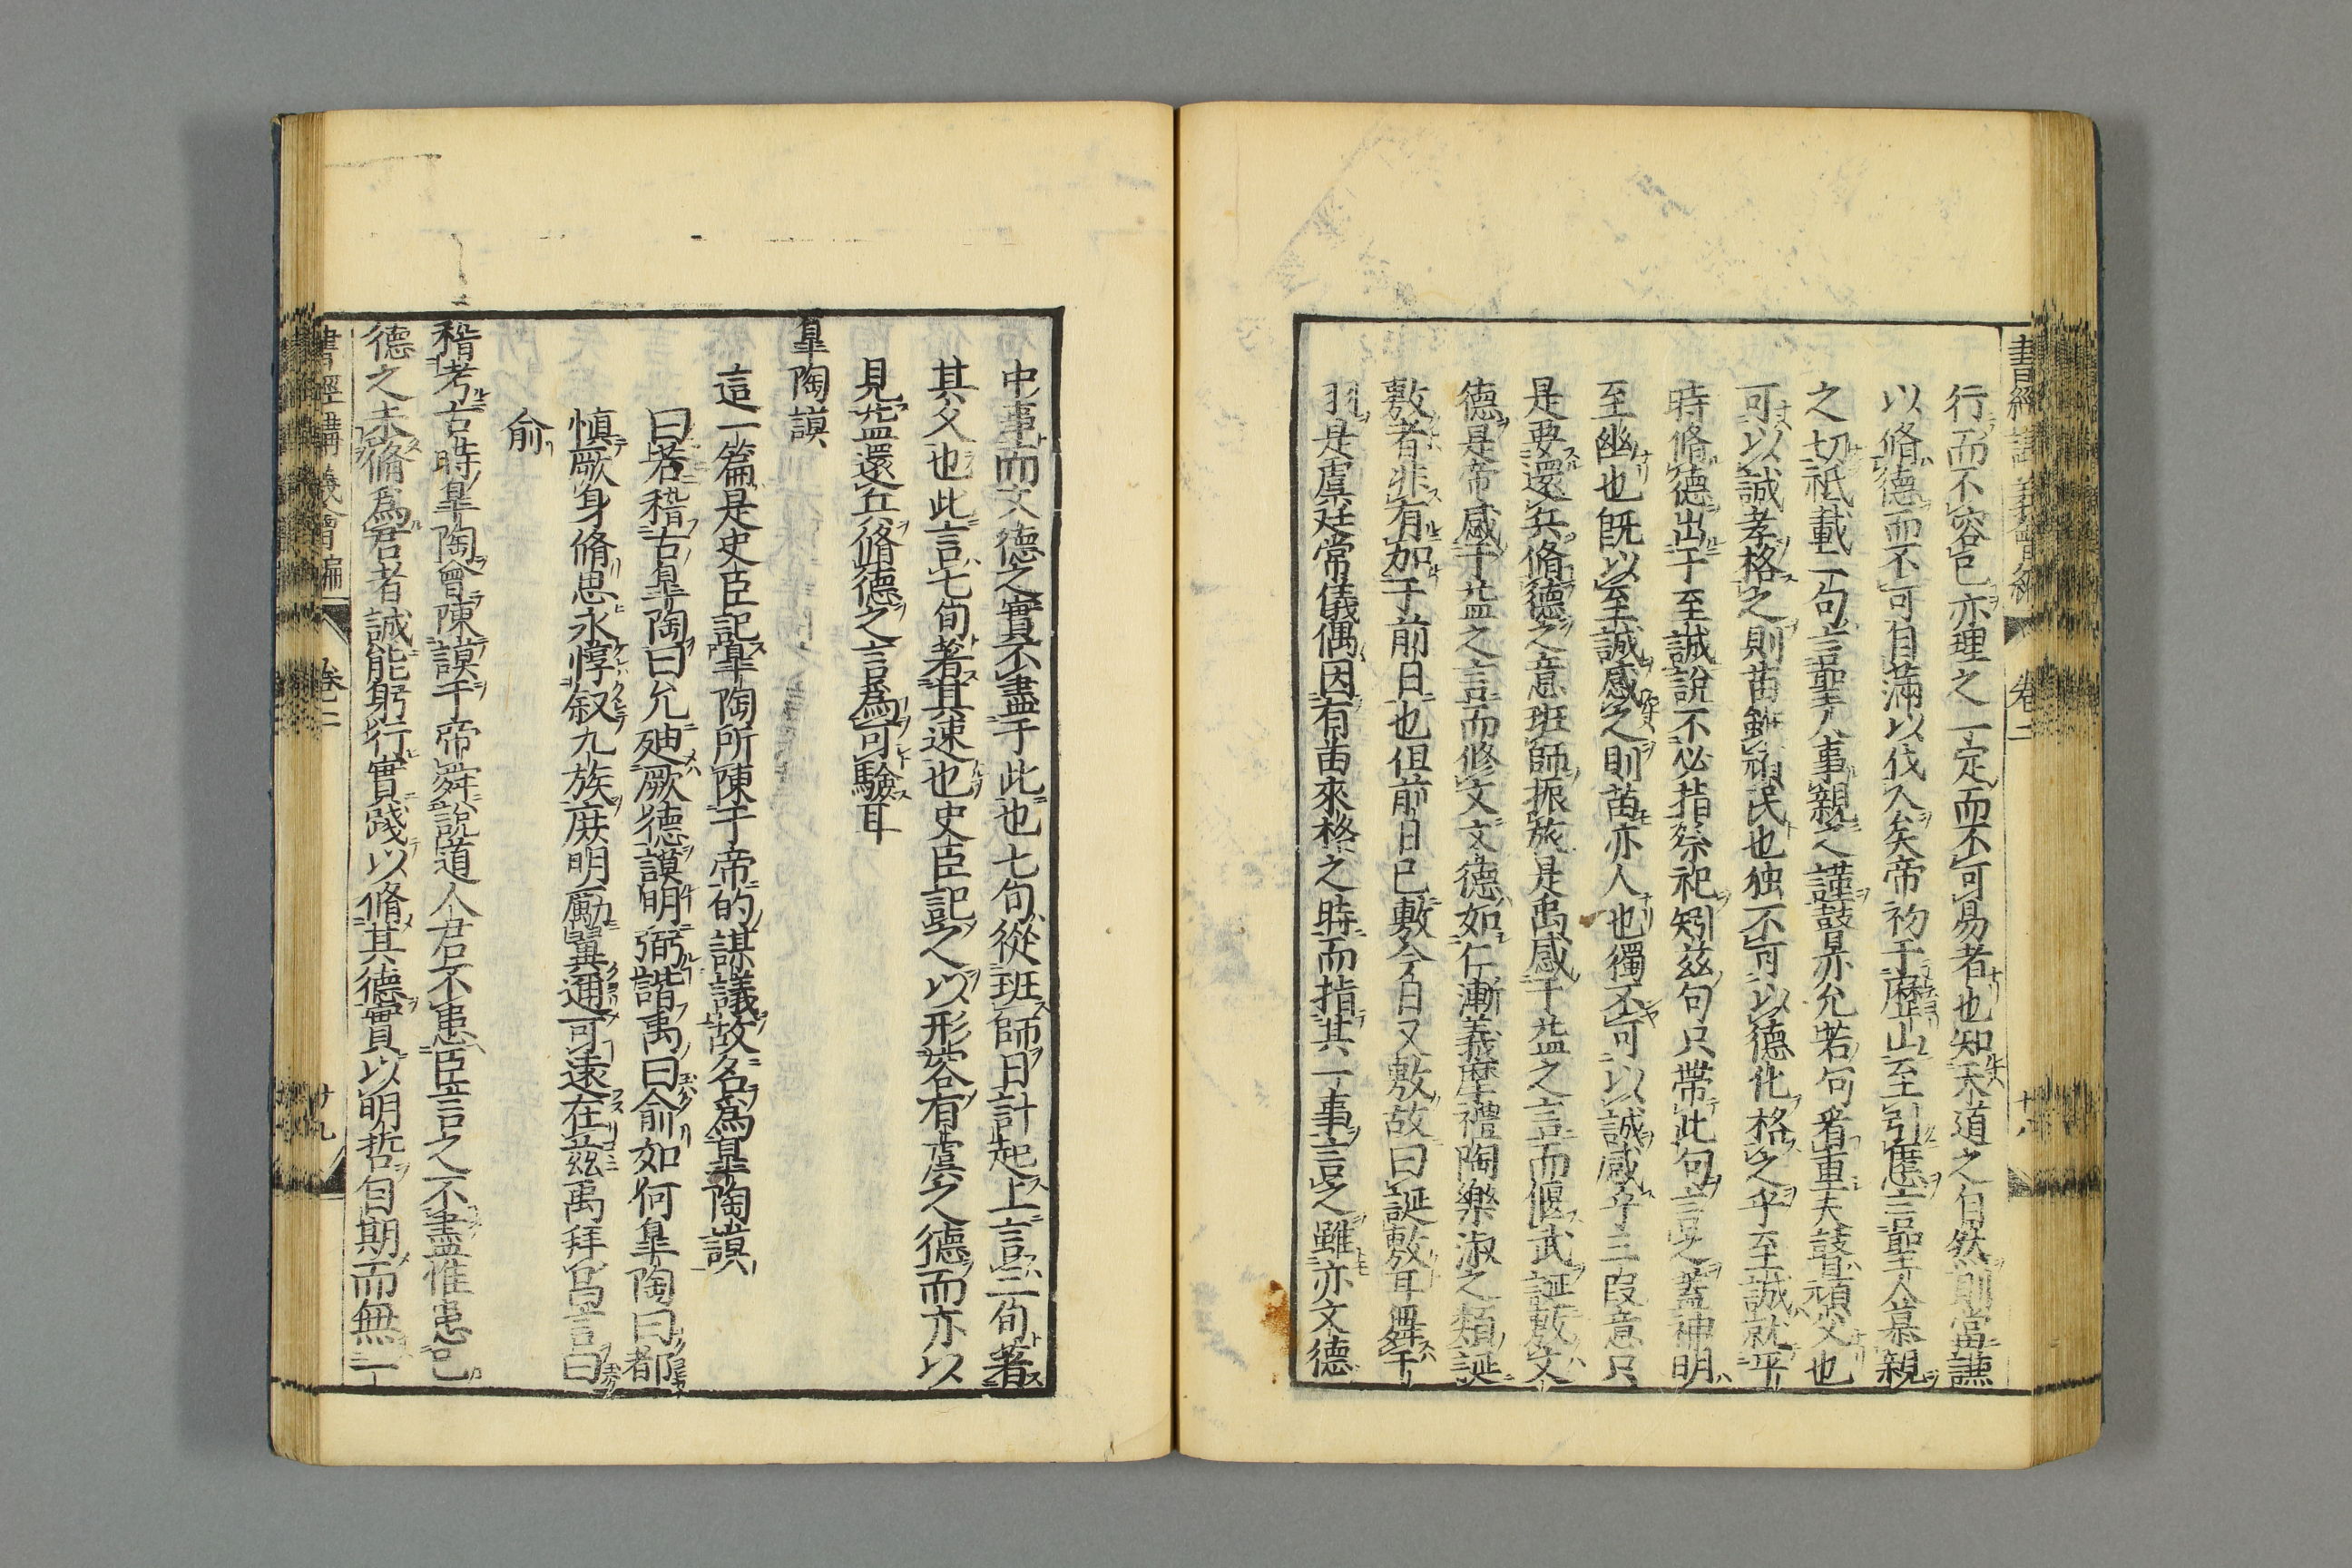 書經講義會編 卷二 十八
行而不容已亦理之一定而不可易者也知天道之自然則當謙
以脩德而不可自滿以伐人矣帝初于歷山至引慝言聖人慕親
之切祗載二句言聖人事親之謹瞽亦允若句着重夫瞽頑父也
可以誠孝格之則苗雖頑民也独不可以德化格之乎至誠就平
時脩德出于至誠說不必指祭祀矧玆句只帶此句言之蓋神明
至幽也旣以至誠感之則苗亦人也獨不可以誠感乎三段意只
是要還兵脩德之意班師振旅是禹感于益之言而偃武誕敷文
德是帝感于益之言而修文文德如仁漸義摩禮陶樂淑之類誕
敷者非有加于前日也但前日已敷今日又敷故曰誕敷耳舞干
羽是虞廷常儀偶因有苗來格之時而指其一事言之雖亦文德
中事而文德之實不盡于此也七旬從班師日計起上言三旬著
其久也此言七旬著其速也史臣記之以形容有虞之德而亦以
見益還兵脩德之言爲可驗耳
皐陶謨
這一篇是史臣記皐陶所陳于帝的謀議故名爲皐陶謨
曰若稽古皐陶曰允廸厥德謨明弼諧禹曰俞如何皐陶曰都
愼厥身脩思永惇叙九族庶明勵翼邇可遠在玆禹拜昌言曰
俞
稽考古時皐陶曾陳謨于帝舜說道人君不患臣言之不盡惟患己
德之未脩爲君者誠能躬行實踐以脩其德實以明哲自期而無一
書經講義會編 卷二 十九